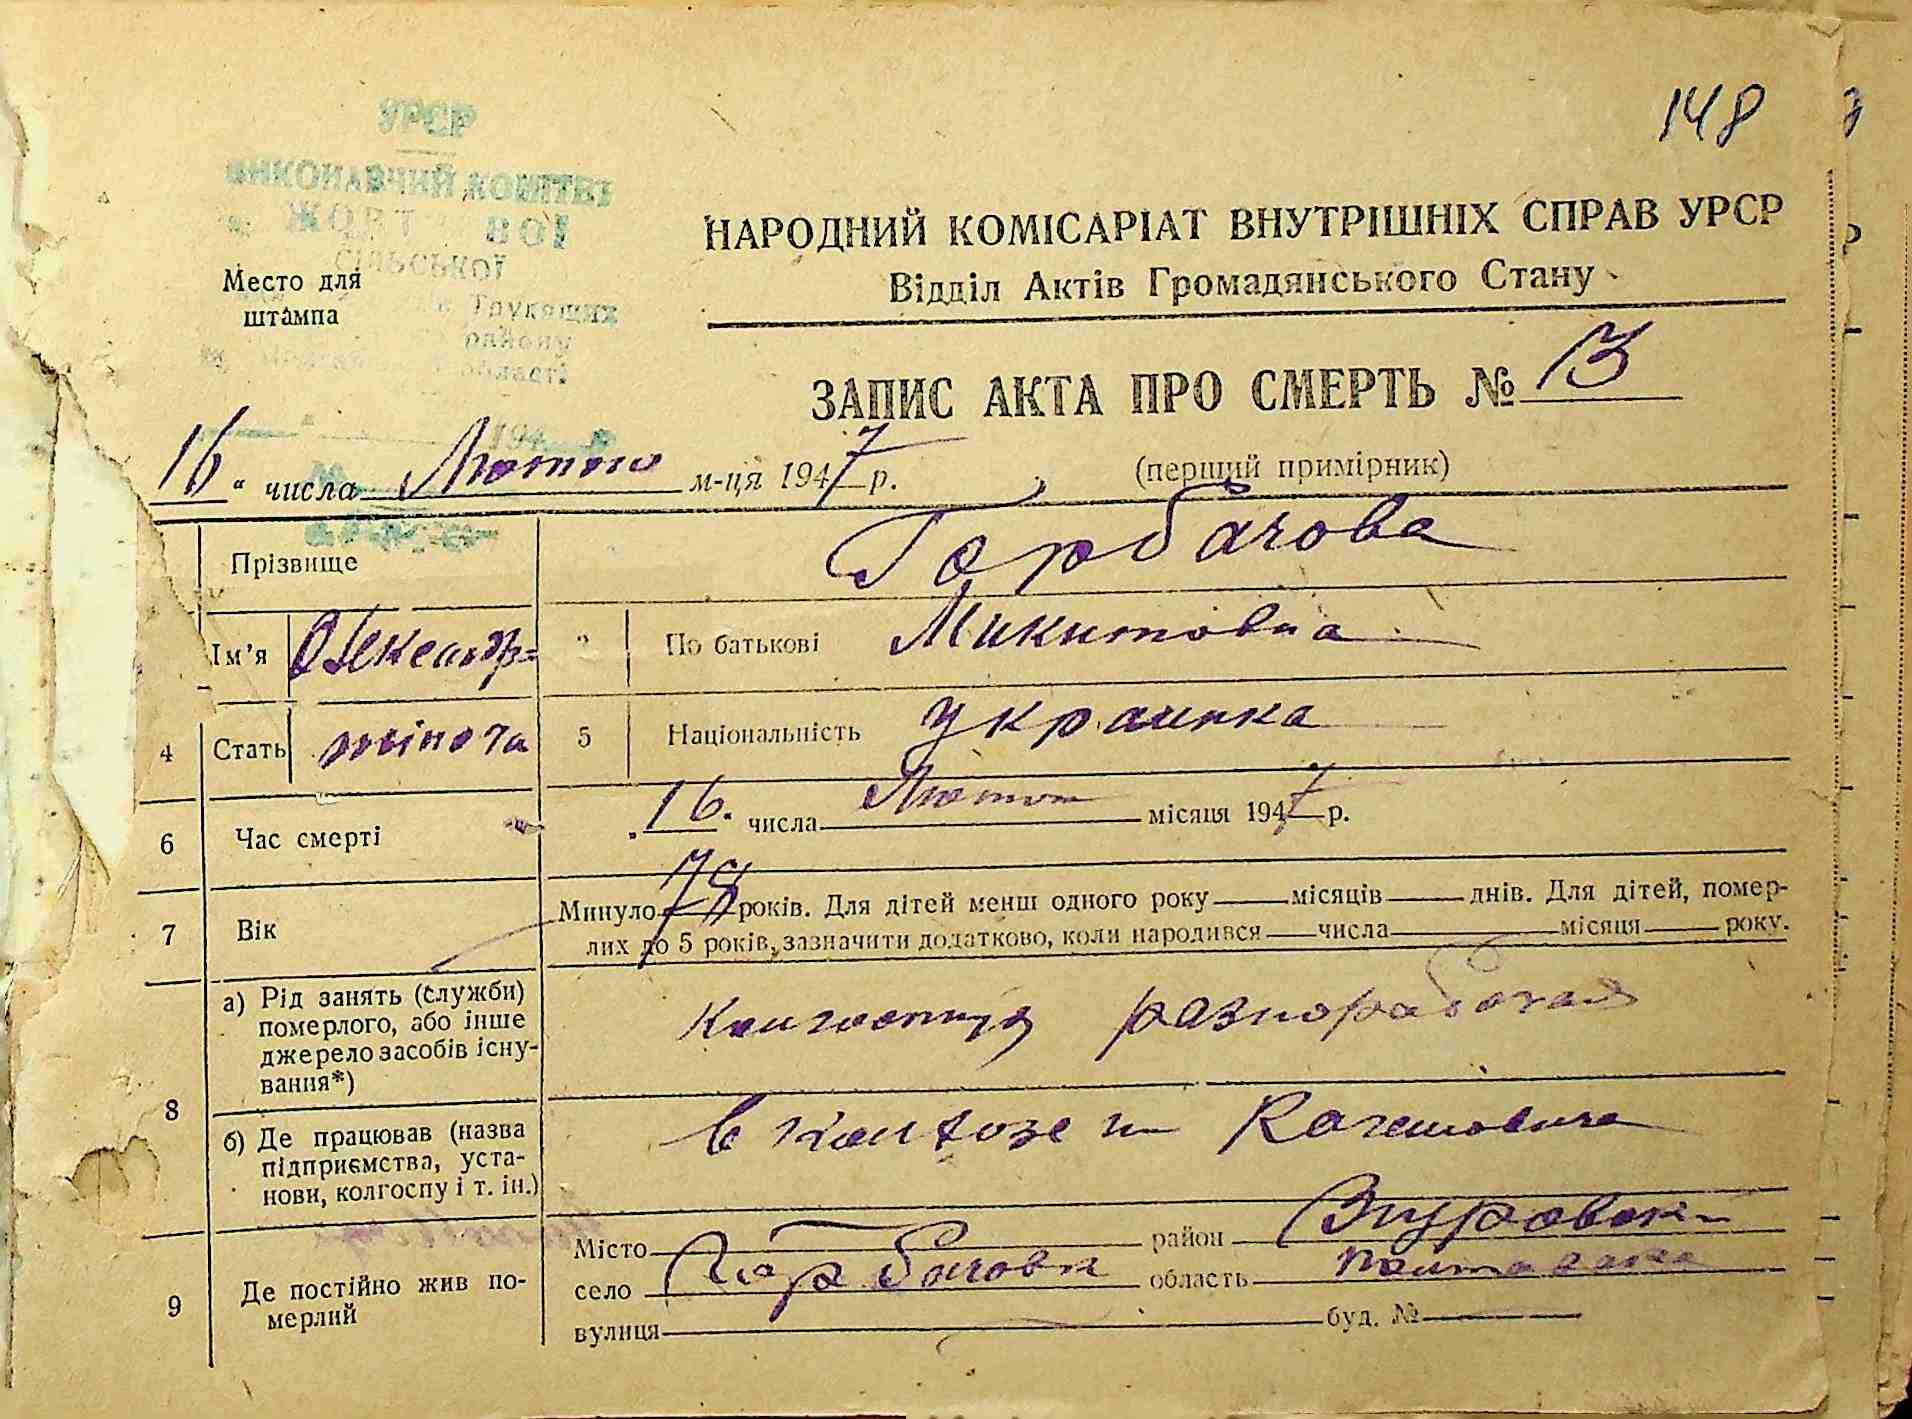 148
УРСР
ВИКОНАВЧИЙ КОМІТЕТ
СІЛЬСЬКОЇ
Трудящих
району
області
Место для
штампа
НАРОДНИЙ КОМІСАРІАТ ВНУТРІШНІХ СПРАВ УРСР
Відділ Актів Громадянського Стану
ЗАПИС АКТА ПРО СМЕРТЬ № 13
16 " числа Лютого м-ця 1947 р. (перший примірник)
Прізвище Горбачова
Ім'я Олександр= По батькові Микитовна
4 Стать жіноча 5 Національність украинка
6 Час смерті "16" числа Лютого місяця 1947 р.
7 Вік Минуло 78 років. Для дітей менш одного року місяців днів. Для дітей, помер-
лих до 5 років, зазначити додатково, коли народився числа місяця року.
8 а) Рід занять (служби)
померлого, або інше
джерело засобів існу-
вання*)
колгоспниця разнорабочая
б) Де працював (назва
підприємства, уста-
нови, колгоспу і т. ін.)
в колхозе им Кагановича
9 Де постійно жив по-
мерлий
Місто район Згуровски
село Горбачовка область Полтавска
вулиця буд. №